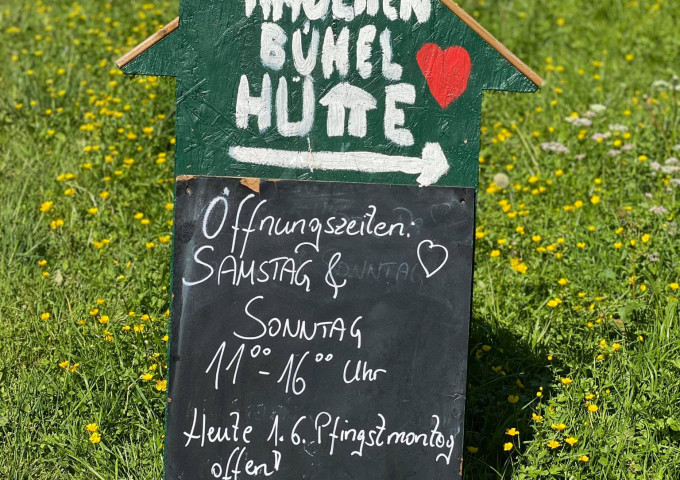 BÜHEL
HÜTTE
Öffnungszeiten:
SAMSTAG & SONNTAG
SONNTAG
11⁰⁰ - 16⁰⁰ Uhr
Heute 1.6. Pfingstmontag
offen